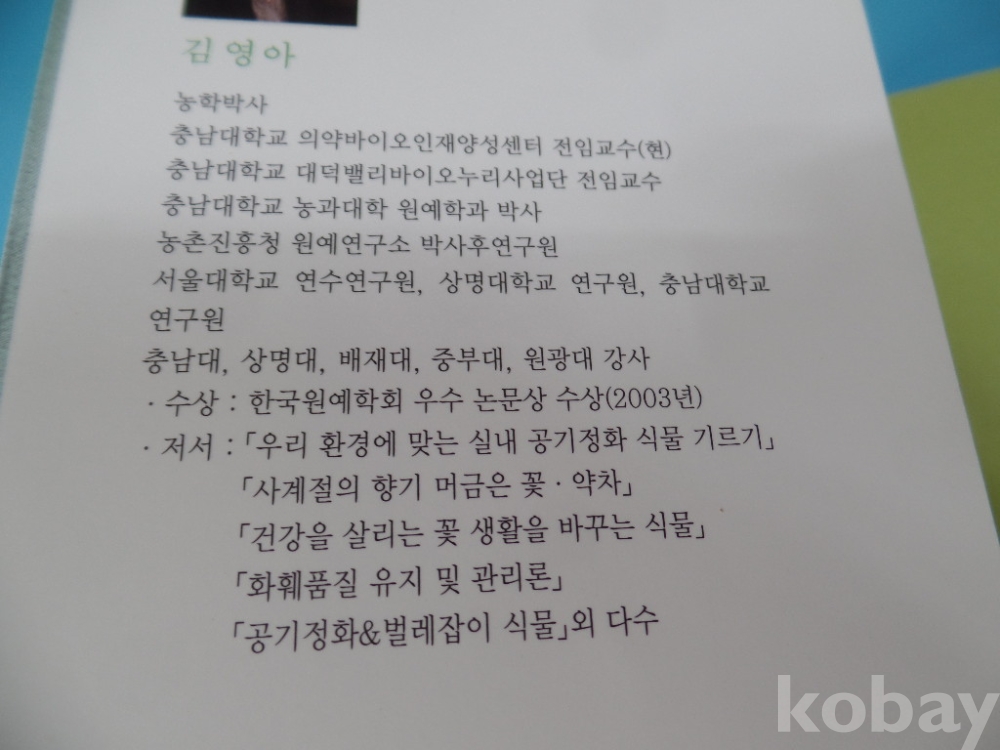 김영아
농학박사
충남대학교 의약바이오인재양성센터 전임교수(현)
충남대학교 대덕밸리바이오누리사업단 전임교수
충남대학교 농과대학 원예학과 박사
농촌진흥청 원예연구소 박사후연구원
서울대학교 연수연구원, 상명대학교 연구원, 충남대학교
연구원
충남대, 상명대, 배재대, 중부대, 원광대 강사
· 수상 : 한국원예학회 우수 논문상 수상(2003년)
· 저서 : 「우리 환경에 맞는 실내 공기정화 식물 기르기」
「사계절의 향기 머금은 꽃 · 약차」
「건강을 살리는 꽃 생활을 바꾸는 식물」
「화훼품질 유지 및 관리론」
「공기정화&벌레잡이 식물」외 다수
kobay